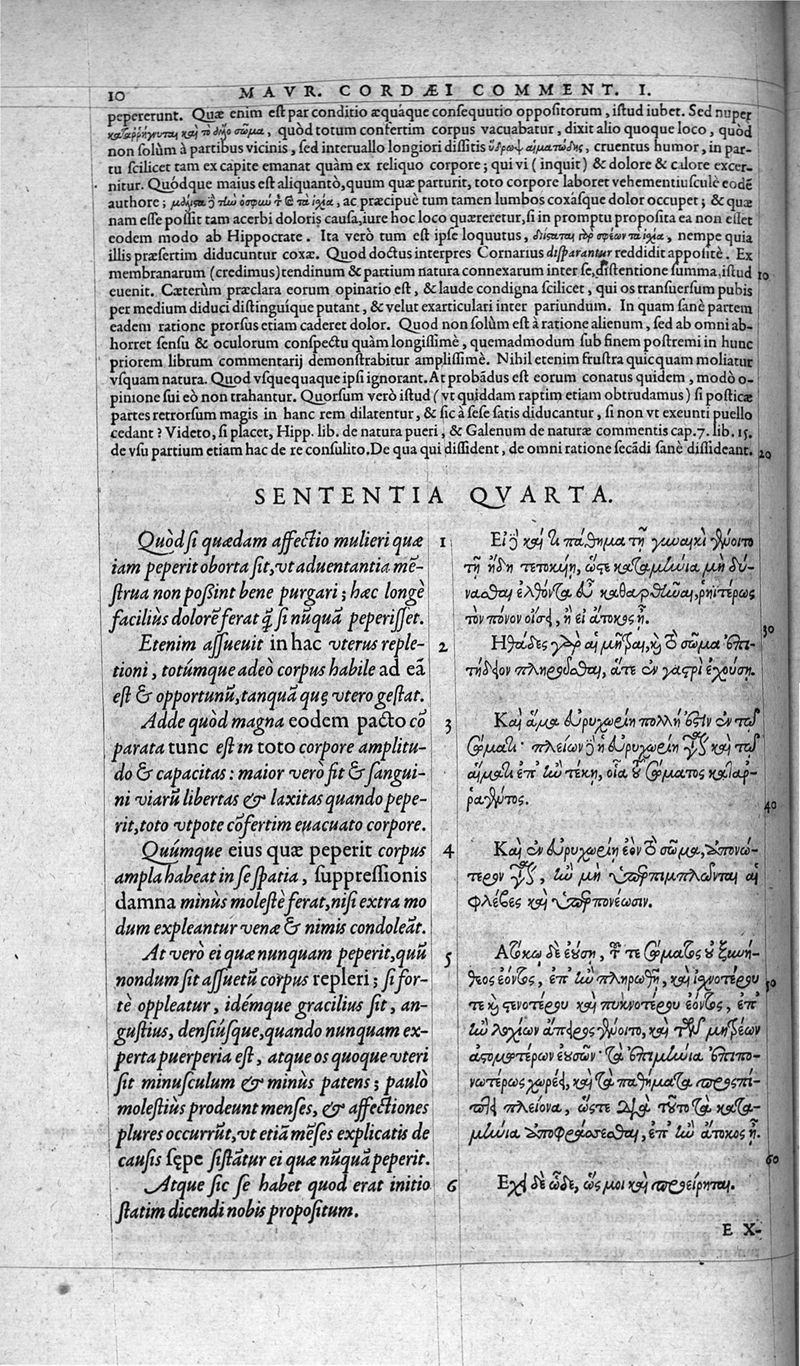 10 MAVR. CORDÆI COMMENT. I.
pepererunt. Quæ enim est par conditio æquáque consequutio oppositorum, istud iubet. Sed nuper
καταῤῥήγνυται καὶ τὸ ἄλλο σῶμα, quòd totum confertim corpus vacuabatur, dixit alio quoque loco, quòd
non solùm à partibus vicinis, sed interuallo longiori dissitis ὕδρωψ αἱματώδης, cruentus humor, in par-
tu scilicet tam ex capite emanat quàm ex reliquo corpore; qui vi (inquit) & dolore & calore excer-
nitur. Quódque maius est aliquantò, quum quæ parturit, toto corpore laboret vehementiusculè eodē
authore; μάλιστα δὲ τὴν ὀσφὺν καὶ τὰ ἰσχία, ac præcipuè tum tamen lumbos coxásque dolor occupet; & quæ
nam esse possit tam acerbi doloris causa, iure hoc loco quæreretur, si in promptu proposita ea non esset
eodem modo ab Hippocrate. Ita verò tum est ipse loquutus, διίσταται γὰρ σφέων τὰ ἰσχία, nempe quia
illis præsertim diducuntur coxæ. Quod doctus interpres Cornarius disparantur reddidit appositè. Ex
membranarum (credimus) tendinum & partium natura connexarum inter se, distentione summa, istud 10
euenit. Cæterùm præclara eorum opinatio est, & laude condigna scilicet, qui os transuersum pubis
per medium diduci distinguíque putant, & velut exarticulari inter pariundum. In quam sanè partem
eadem ratione prorsus etiam caderet dolor. Quod non solùm est à ratione alienum, sed ab omni ab-
horret sensu & oculorum conspectu quàm longissimè, quemadmodum sub finem postremi in hunc
priorem librum commentarij demonstrabitur amplissimè. Nihil etenim frustra quicquam moliatur
vsquam natura. Quod vsquequaque ipsi ignorant. At probādus est eorum conatus quidem, modò o-
pinione sui eò non trahantur. Quorsum verò istud (vt quiddam raptim etiam obtrudamus) si posticæ
partes retrorsum magis in hanc rem dilatentur, & sic à sese satis diducantur, si non vt exeunti puello
cedant? Videto, si placet, Hipp. lib. de natura pueri, & Galenum de naturæ commentis cap. 7. lib. 15.
de vsu partium etiam hac de re consulito. De qua qui dissident, de omni ratione secādi sanè dissideant. 20
SENTENTIA QVARTA.
Quòd si quædam affectio mulieri quæ
iam peperit oborta sit, vt aduentantia mē-
strua non possint bene purgari; hæc longè
faciliùs dolorē ferat q̃ si nūquā peperisset.
Etenim assueuit in hac vterus reple-
tioni, totúmque adeò corpus habile ad eā
est & opportunū, tanquā quę vtero gestat.
Adde quòd magna eodem pacto cō
parata tunc est in toto corpore amplitu-
do & capacitas: maior verò fit & sangui-
ni viarū libertas & laxitas quando pepe-
rit, toto vtpote cōfertim euacuato corpore.
Quúmque eius quæ peperit corpus
ampla habeat in se spatia, suppressionis
damna minùs molestè ferat, nisi extra mo
dum expleantur venæ & nimis condoleāt.
At verò ei quæ nunquam peperit, quū
nondum sit assuetū corpus repleri; si for-
tè oppleatur, idémque gracilius sit, an-
gustius, densiúsque, quando nunquam ex-
perta puerperia est, atque os quoque vteri
sit minusculum & minùs patens; paulò
molestiùs prodeunt menses, & affectiones
plures occurrūt, vt etiā mēses explicatis de
causis sępe sistātur ei quæ nūquā peperit.
Atque sic se habet quod erat initio
statim dicendi nobis propositum.
1 Εἰ δὲ καί τι πάθημα τῇ γυναικὶ γένοιτο
τῇ ἤδη τετοκυίῃ, ὥστε καταμήνια μὴ δύ-
νασθαι ἐλθόντα εὖ καθαρθῆναι, ῥηιτέρως
τὸν πόνον οἴσει, ἢ εἰ ἄτοκος ἦ. 30
2 Ἠθάδες γὰρ αἱ μῆτραι, καὶ τὸ σῶμα ἐπι-
τήδειον πληροῦσθαι, ἅτε ἐν γαστρὶ ἐχούσῃ.
3 Καὶ ἅμα εὐρυχωρίη πολλή ἐστιν ἐν τῷ
σώματι· πλείων δὲ ἡ εὐρυχωρίη γίνεται καὶ τῷ
αἵματι ἐπὴν τέκῃ, οἷα τοῦ σώματος καταρ-
ραγέντος. 40
4 Καὶ ἐν εὐρυχωρίῃ ἐὸν τὸ σῶμα, ἀπονώ-
τερον γίνεται, ἢν μὴ ὑπερπιμπλῶνται αἱ
φλέβες καὶ ὑπερπονέωσιν.
5 Ἀτόκῳ δὲ ἐούσῃ, τοῦ τε σώματος οὐ ξυνή-
θεος ἐόντος, ἐπὴν πληρωθῇ, καὶ ἰσχνοτέρου 50
τε καὶ στενοτέρου καὶ πυκνοτέρου ἐόντος, ἐπ'
ἢν λοχίων ἄπειρος γένοιτο, καὶ τῶν μητρέων
ἀστομωτέρων ἐουσῶν· τὰ ἐπιμήνια ἐπιπο-
νωτέρως χωρεῖ, καὶ τὰ παθήματα προσπί-
πτει πλείονα, ὥστε διὰ τοῦτο τὰ κατα-
μήνια ἀποφράσσεσθαι, ἐπὴν ἄτοκος ᾖ. 60
6 Ἔχει δὲ ὧδε, ὥς μοι καὶ προείρηται.
EX-